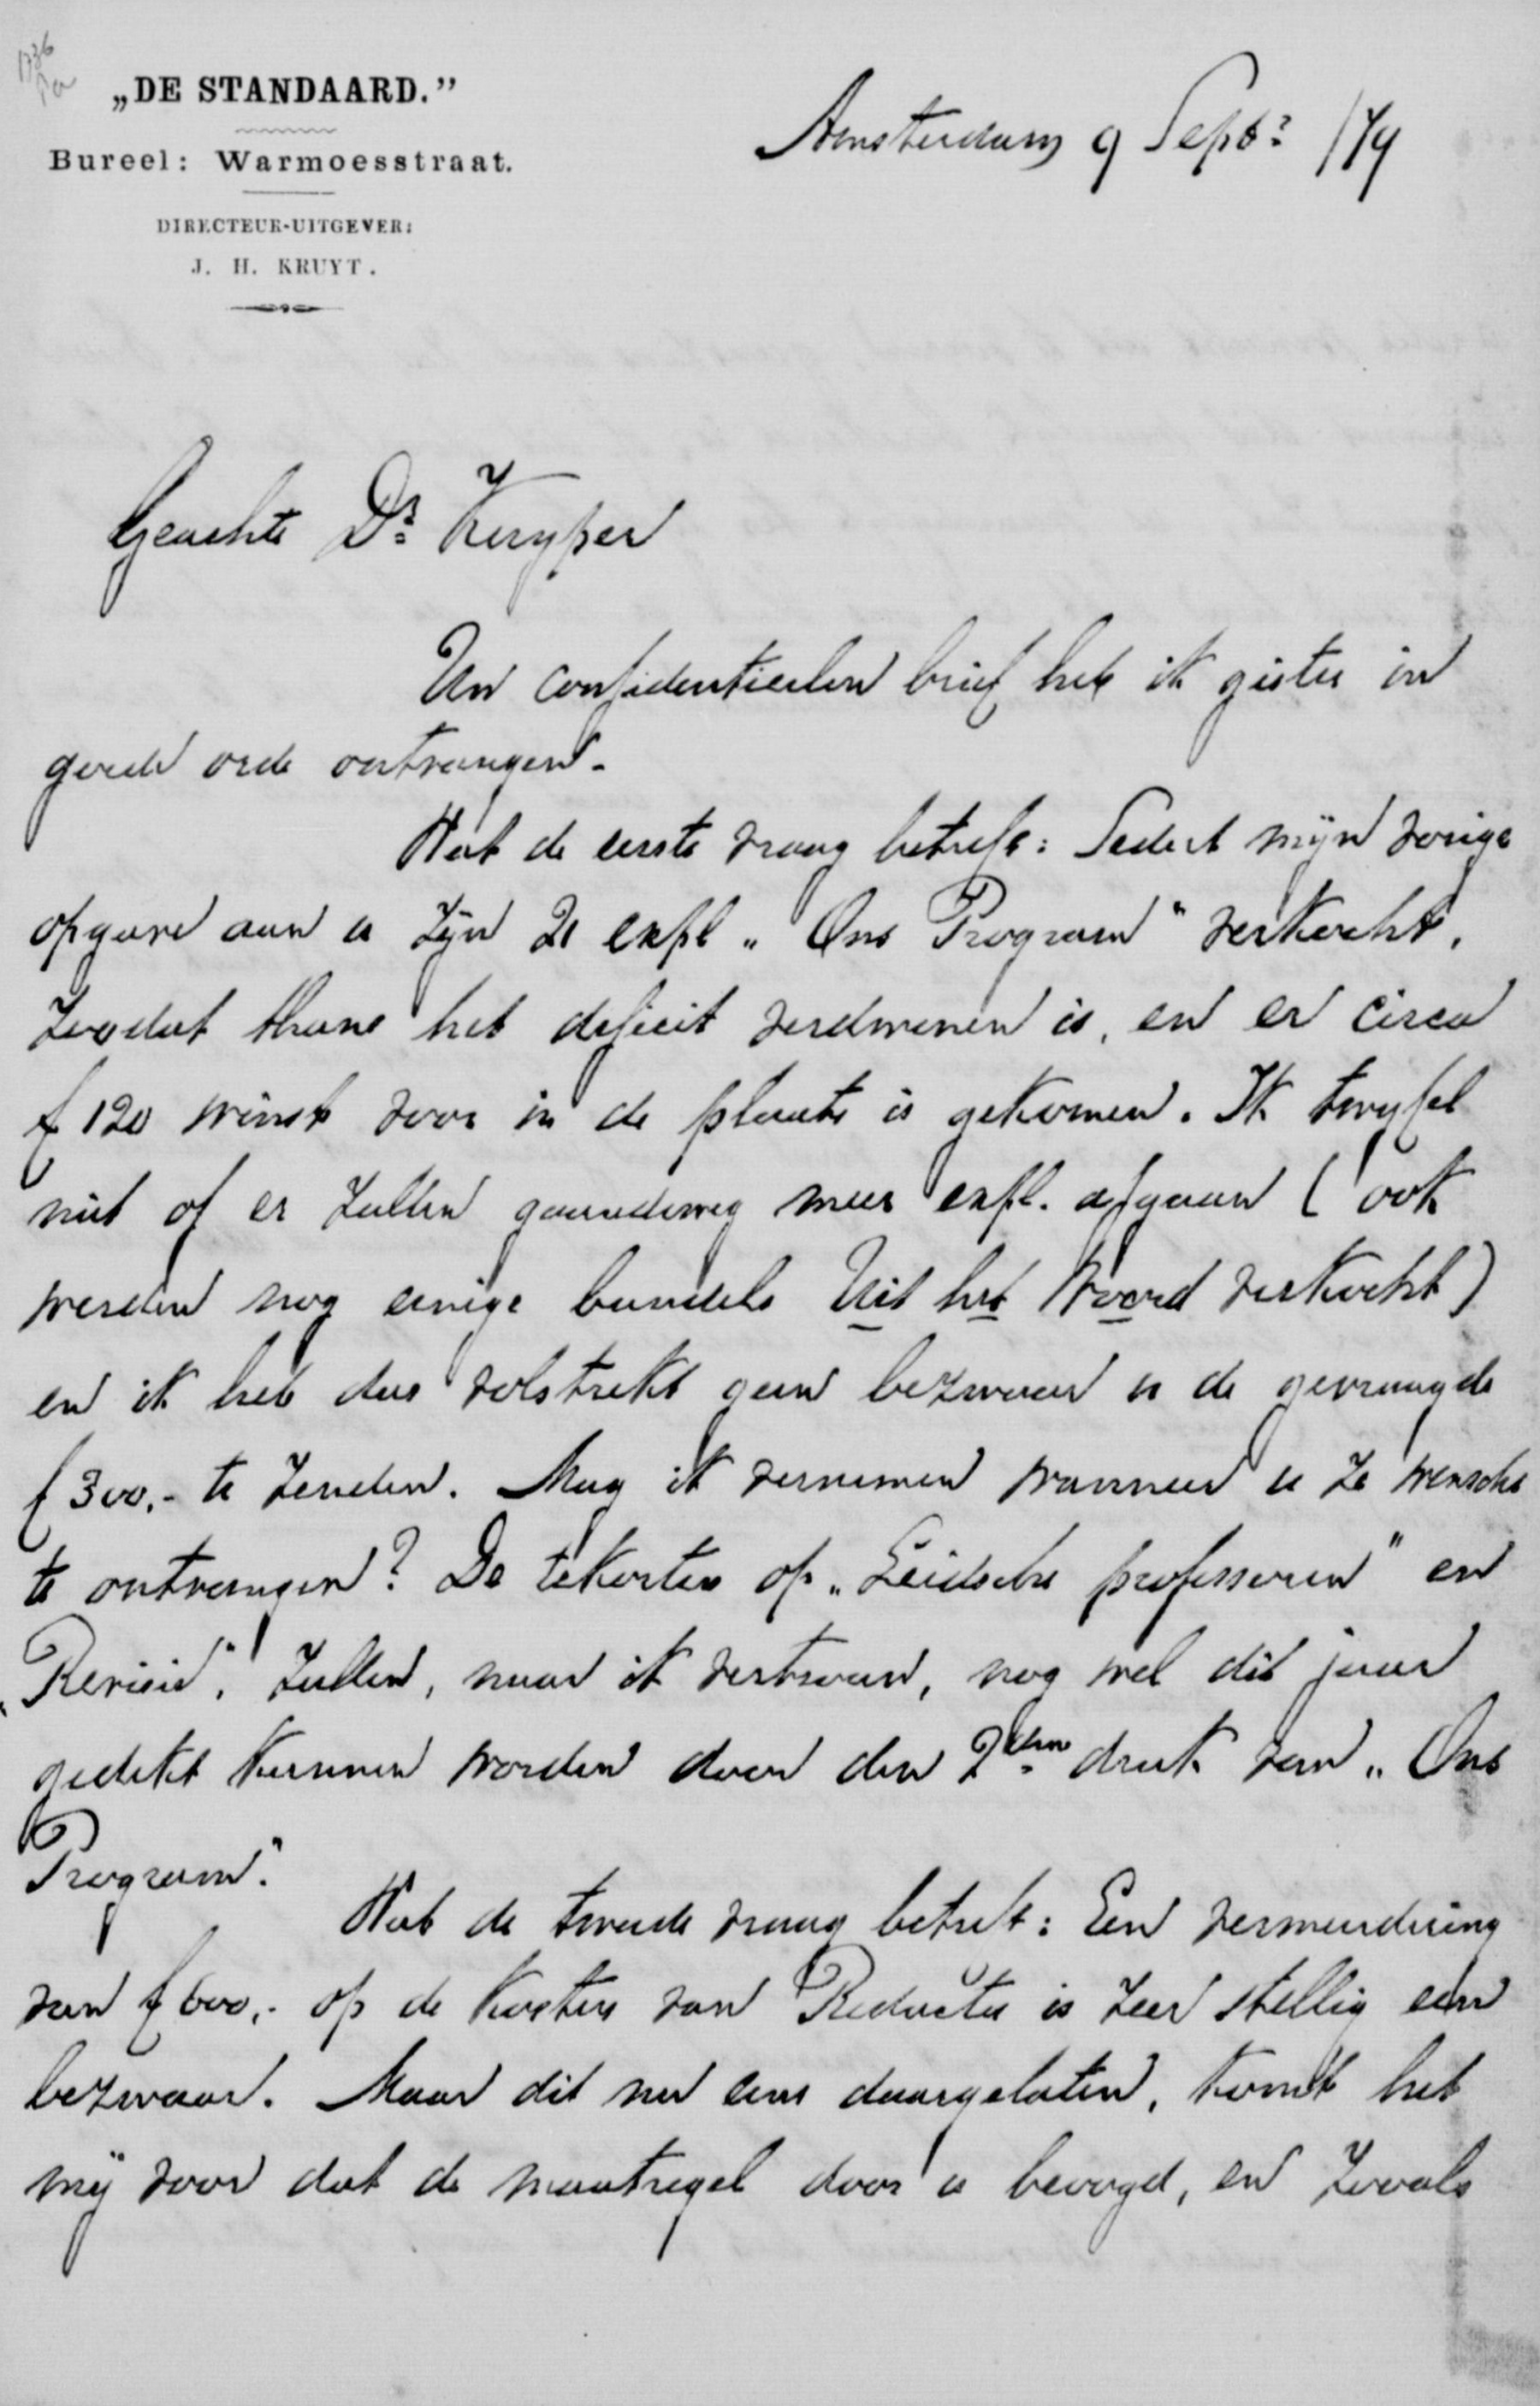 1736
„DE STANDAARD.”
Bureel: Warmoesstraat.
DIRECTEUR-UITGEVER:
J. H. KRUYT.
Amsterdam 9 Septr /79
Geachte Dr Kuyper
Uw confidentieelen brief heb ik gister in
goede orde ontvangen.
Wat de eerste vraag betreft: Sedert mijn vorige
opgave aan u zijn 21 expl „Ons Program" verkocht,
zoodat thans het deficit verdwenen is, en er circa
f 120 winst voor in de plaats is gekomen. Ik twyfel
niet of er zullen gaandeweg meer expl. afgaan (ook
werden nog eenige bundels Uit het Woord verkocht)
en ik heb dus volstrekt geen bezwaar u de gevraagde
f 300,- te zenden. Mag ik vernemen wanneer u ze wenscht
te ontvangen? De tekorten op „Leidsche professoren" en
„Revisie", zullen, naar ik vertrouw, nog wel dit jaar
gedekt kunnen worden door den 2den druk van „Ons
Program".
Wat de tweede vraag betreft: Een vermeerdering
van f 600,- op de kosten van Redactie is zeer stellig een
bezwaar. Maar dit nu eens daargelaten, komt het
mij voor dat de maatregel door u beoogd, en zooals